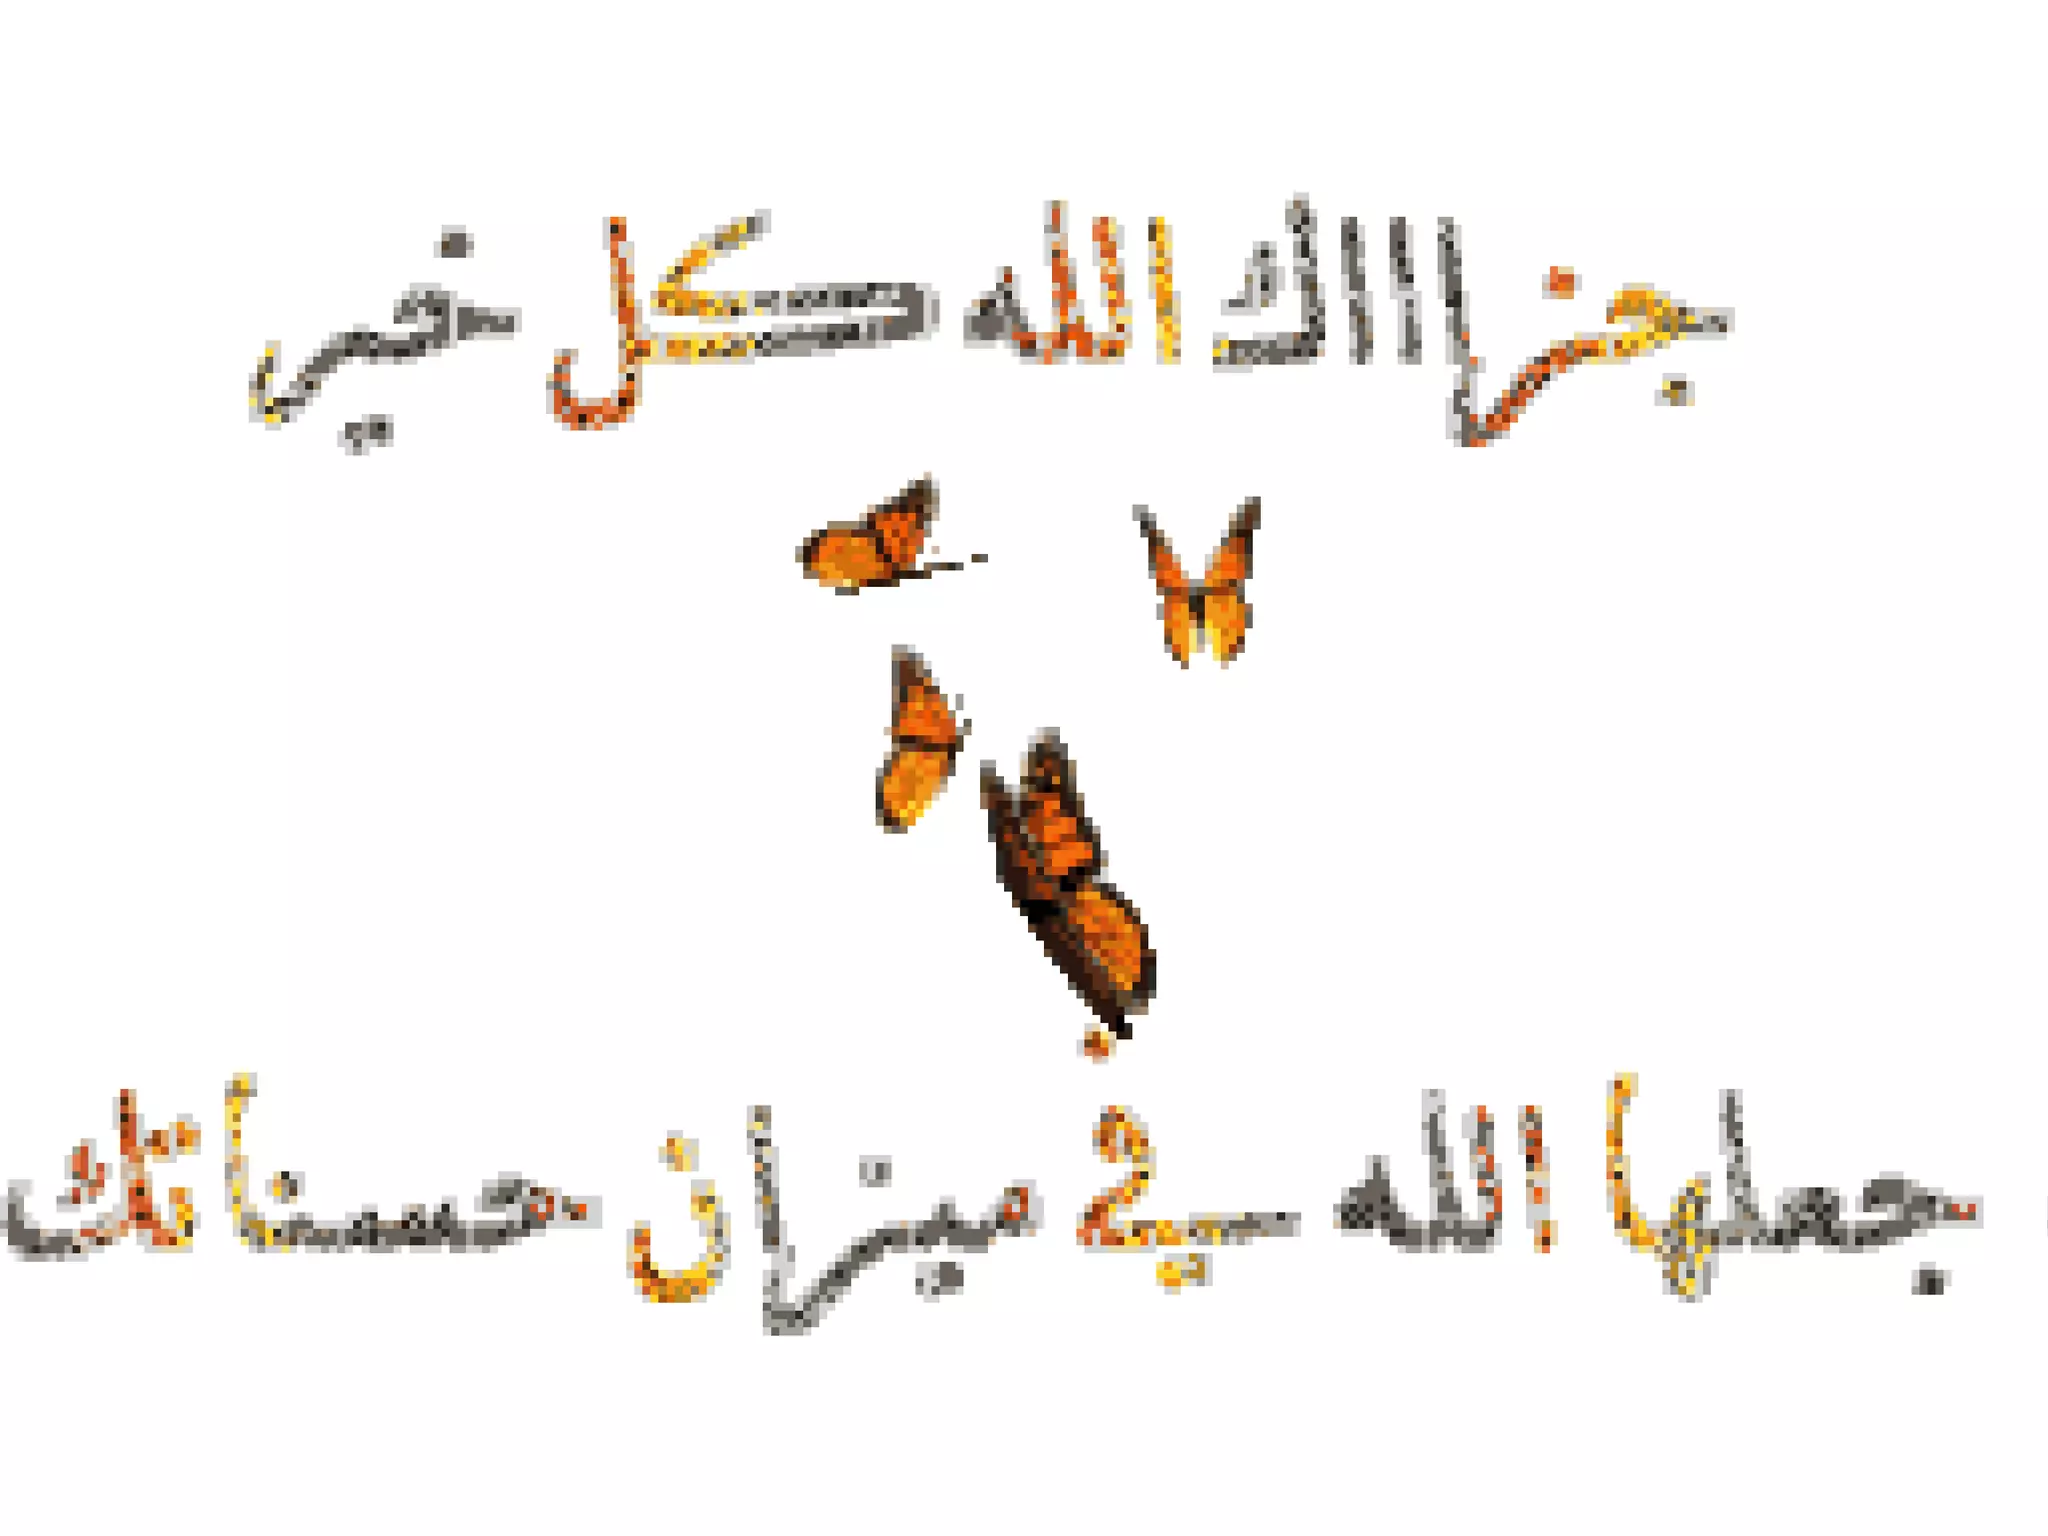 جزاااك الله كل خير
جعلها الله في ميزان حسناتك